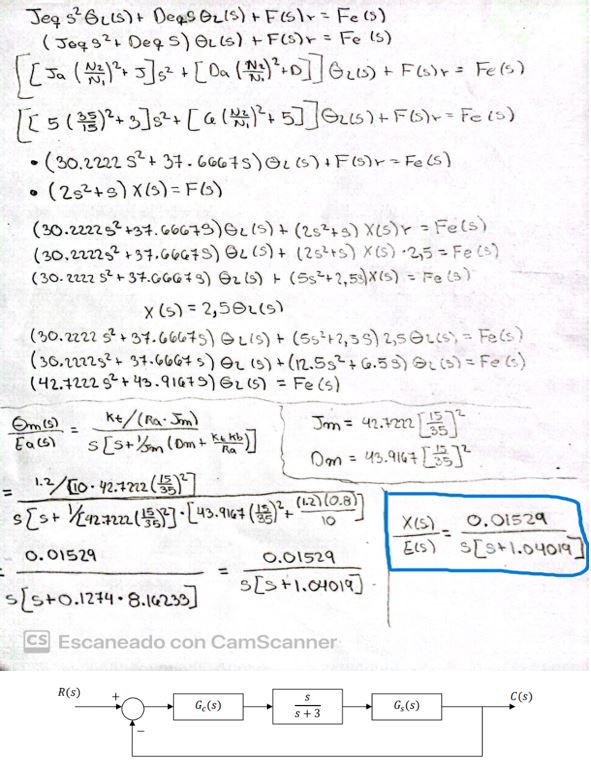 Jeq s² θL(s) + Deq s θL(s) + F(s)r = Fe(s)
(Jeq s² + Deq s) θL(s) + F(s)r = Fe(s)
[[Ja (N2/N1)² + J]s² + [Da (N2/N1)² + D]] θL(s) + F(s)r = Fe(s)
[[5 (35/15)² + 3]s² + [6 (N2/N1)² + 5]] θL(s) + F(s)r = Fe(s)
• (30.2222 s² + 37.6667s) θL(s) + F(s)r = Fe(s)
• (2s² + s) X(s) = F(s)
(30.2222s² + 37.6667s) θL(s) + (2s² + s) X(s)r = Fe(s)
(30.2222s² + 37.6667s) θL(s) + (2s² + s) X(s) · 2,5 = Fe(s)
(30.2222 s² + 37.6667s) θL(s) + (5s² + 2,5s)X(s) = Fe(s)
X(s) = 2,5θL(s)
(30.2222 s² + 37.6667s) θL(s) + (5s² + 2,5s) 2,5θL(s) = Fe(s)
(30.2222s² + 37.6667s) θL(s) + (12.5s² + 6.5s) θL(s) = Fe(s)
(42.7222s² + 43.9167s) θL(s) = Fe(s)
θm(s)/Ea(s) = Kt/(Ra·Jm) / s[s + 1/Jm (Dm + Kt Kb/Ra)]
Jm = 42.7222 [15/35]²
Dm = 43.9167 [15/35]²
= 1.2/[10 · 42.7222 (15/35)²] / s[s + 1/[42.7222 (15/35)²] · [43.9167 (15/35)² + (1.2)(0.8)/10]
= 0.01529 / s[s + 0.1274 · 8.16233] = 0.01529 / s[s + 1.04019]
X(s)/E(s) = 0.01529 / s[s + 1.04019]
CS Escaneado con CamScanner
R(s) + − Gc(s) s/(s + 3) Gs(s) C(s)